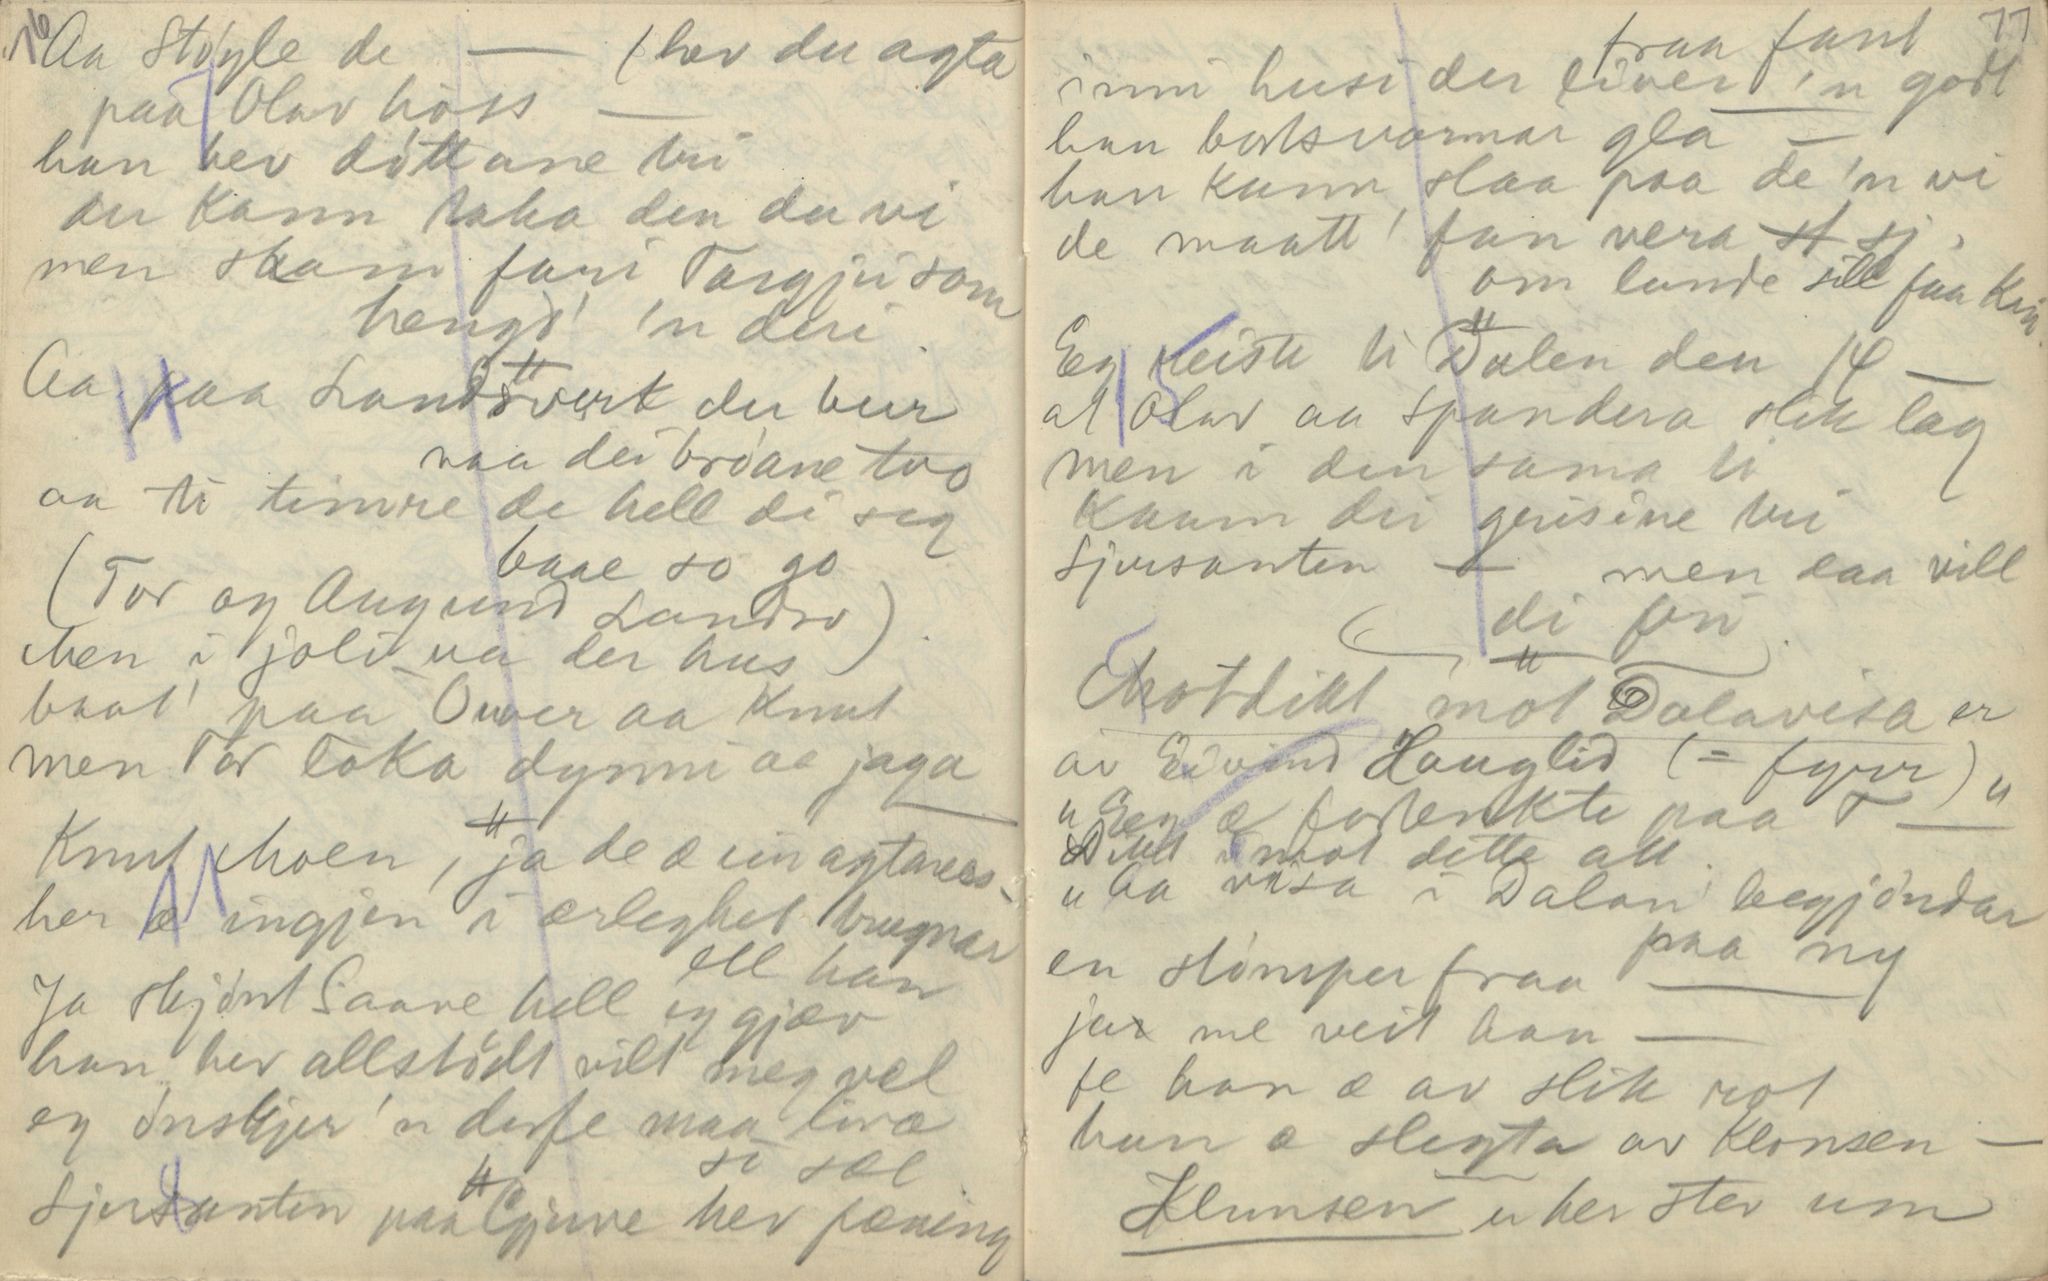 76
Aa Støyle de — (hev du agta
paa Olav hoss —
han hev døttane tri
du kann taka den du vi
men skam fari Targjei som
hengd' 'n deri
Aa paa Landsverk du beir
naa dei brøane tvo
aa ti timre de hell di seg
baae so go
(Tor og Augund Landsv).
Men i joli va der hus
baat' paa Ouver aa Knut
men Tor toka dynni aa jaga —
Knut Moen, ja de æ ein agtanes-
her æ ingjen i ærleghet trugnar
ell han
Ja skjønt Saave hell eg gjæv
han hev allstødt vilt meg vel
eg ønskjer 'n derfe maa liva
so sæl
Sjursanten paa Gjuve hev pæning
77
fraa fant
inni husi der liver 'n godt
han bests varmar gla —
han kann slaa paa de 'n vi
de maatt' fan vera sj.
om lande sill faa Kri
Eg reiste ti Dalen den 14 —
at Olav aa spandera slik lag
men i den sama ti
kaam dei grisine tri
Sjursanten — men daa vill
di fri
Motdikt mot Dalavisa er
av Eivind Hauglid (= fyrr) "
" Eg æ fortenkte paa T —
Dikt imot dette att.
" Aa visa i Dalan begjøndar
paa ny
en slømper fraa —
ja me veit han —
fe han æ av slik rot
han æ slegta av Klonsen —
Klunsen " her stev um